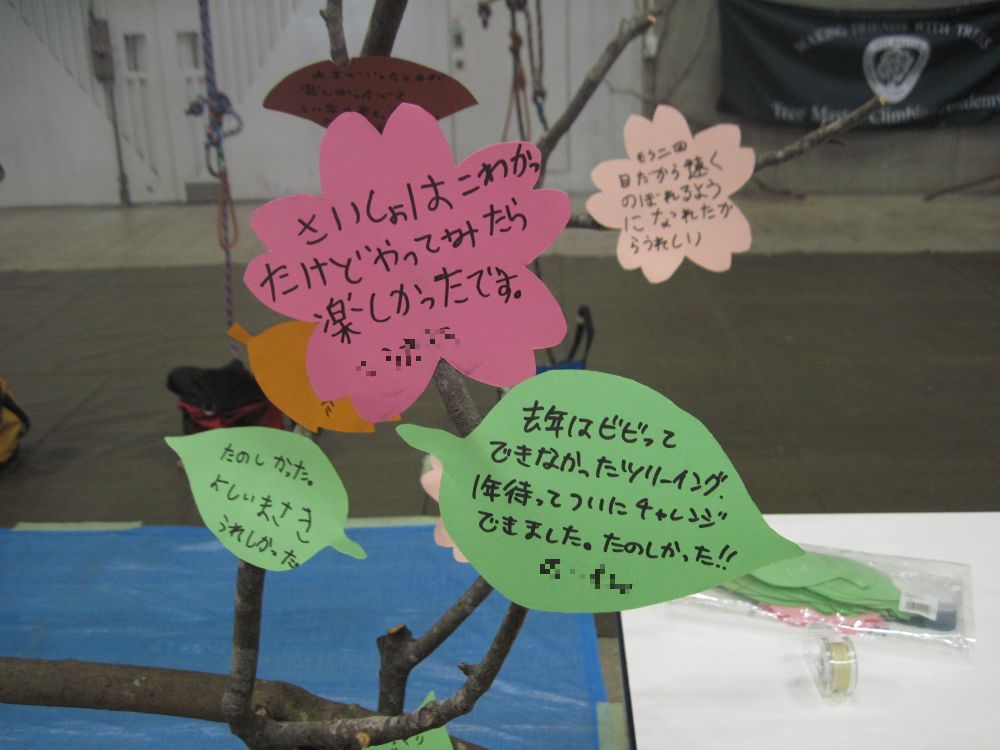 MAKING FRIENDS WITH TREES
Tree Master Climbing Academy
楽しかったって
さいしょはこわかっ
たけどやってみたら
楽しかったです。
もう二回
目だから速く
のぼれるよう
になれたか
らうれしい
たのしかった。
よしいまさき
うれしかった
去年はビビって
できなかったツリーイング、
1年待ってついにチャレンジ
できました。たのしかった!!